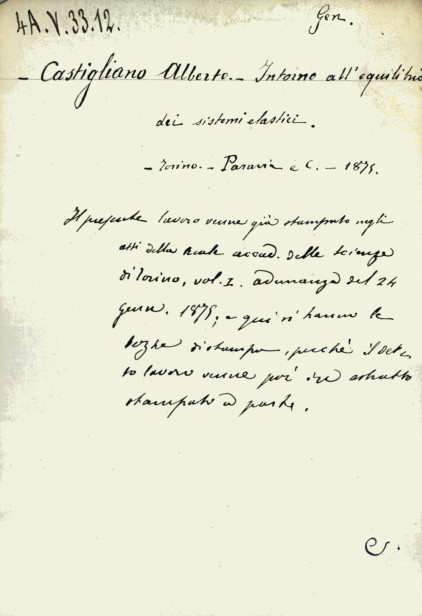 4A.V.33.12.
Gen.
- Castigliano Alberto. - Intorno all'equilibrio
dei sistemi elastici.
- Torino. - Paravia e C. - 1875.
Il presente lavoro venne già stampato negli
atti della Reale accad. delle scienze
di Torino, vol. I. adunanza del 24
genn. 1875; e qui si hanno le
bozze di stampa, perchè il det-
to lavoro venne poi in estratto
stampato a parte.